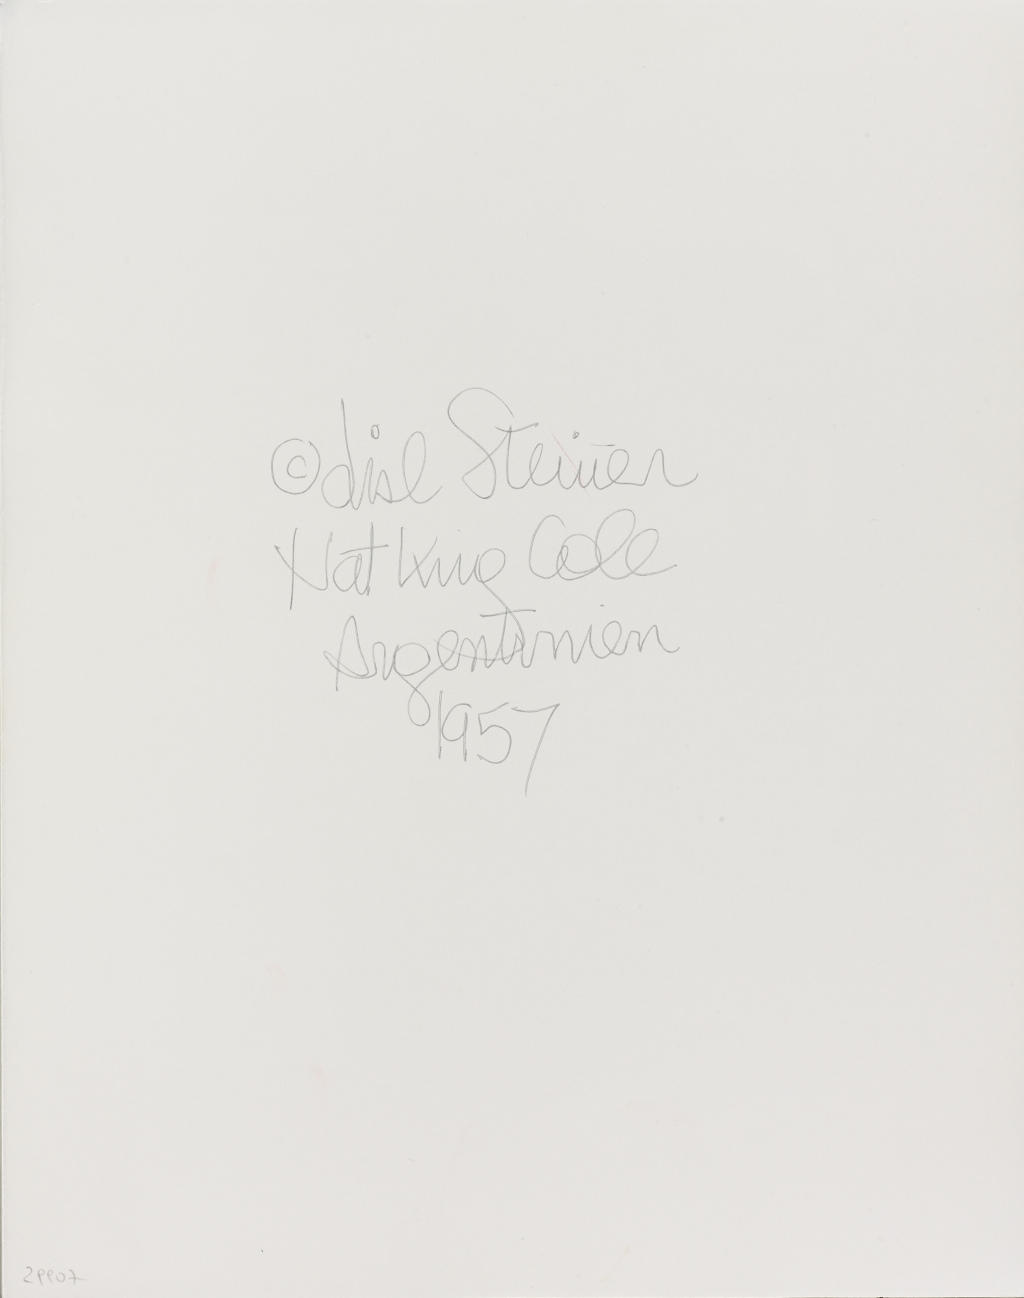 © Lisl Steiner
Nat King Cole
Argentinien
1957
29907